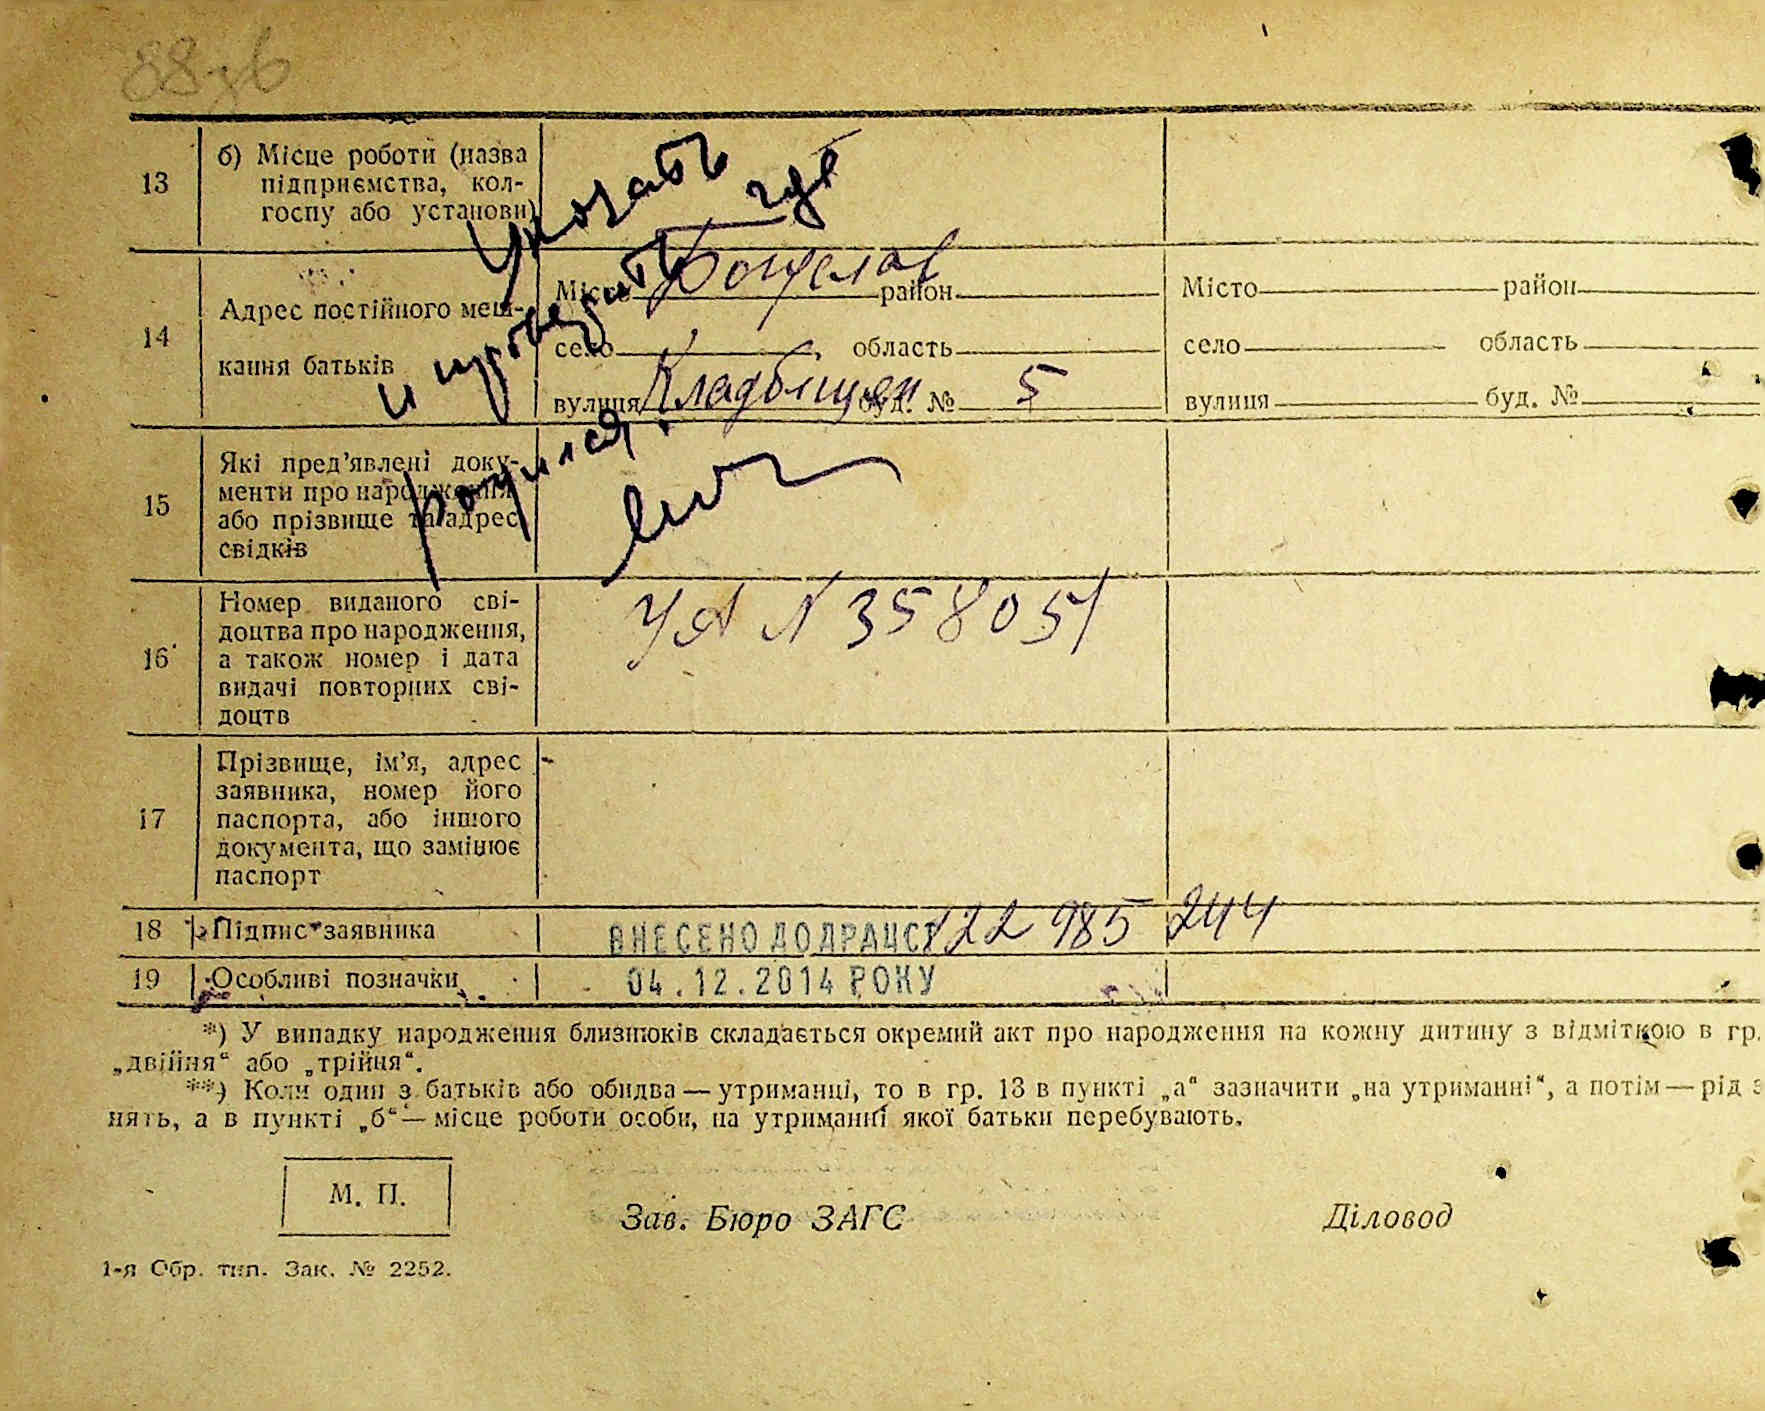 88зв
13
б) Місце роботи (назва
підприємства, кол-
госпу або установи)
Указать
где
и
родился.
14
Адрес постійного меш-
кання батьків
Місто Богуслав район
село , область
вулиця Кладбищен буд. № 5
Місто район
село область
вулиця буд. №
15
Які пред’явлені доку-
менти про народження
або прізвище та адрес
свідків
16
Номер виданого сві-
доцтва про народження,
а також номер і дата
видачі повторних сві-
доцтв
УА N 358051
17
Прізвище, ім’я, адрес
заявника, номер його
паспорта, або іншого
документа, що замінює
паспорт
18 Підпис заявника
ВНЕСЕНО ДО ДРАЦСГ 122 985 244
19 Особливі позначки
04.12.2014 РОКУ
*) У випадку народження близнюків складається окремий акт про народження на кожну дитину з відміткою в гр.
„двійня“ або „трійня“.
**) Коли один з батьків або обидва — утриманці, то в гр. 13 в пункті „а“ зазначити „на утриманні“, а потім — рід з
нять, а в пункті „б“ — місце роботи особи, на утриманні якої батьки перебувають.
М. П.
Зав. Бюро ЗАГС Діловод
1-я Обр. тип. Зак. № 2252.